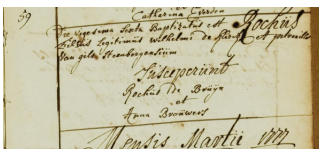 59
Catharina Everden
Die Vigesima Sexta Baptizatus est Rochus
filius Legitimus Wilhelmi de et petronilla
Van gilen Steenbergensium
Susceperunt
Rochus de Bruijn
et
Anna Brouwers
Mensis Martii 1777